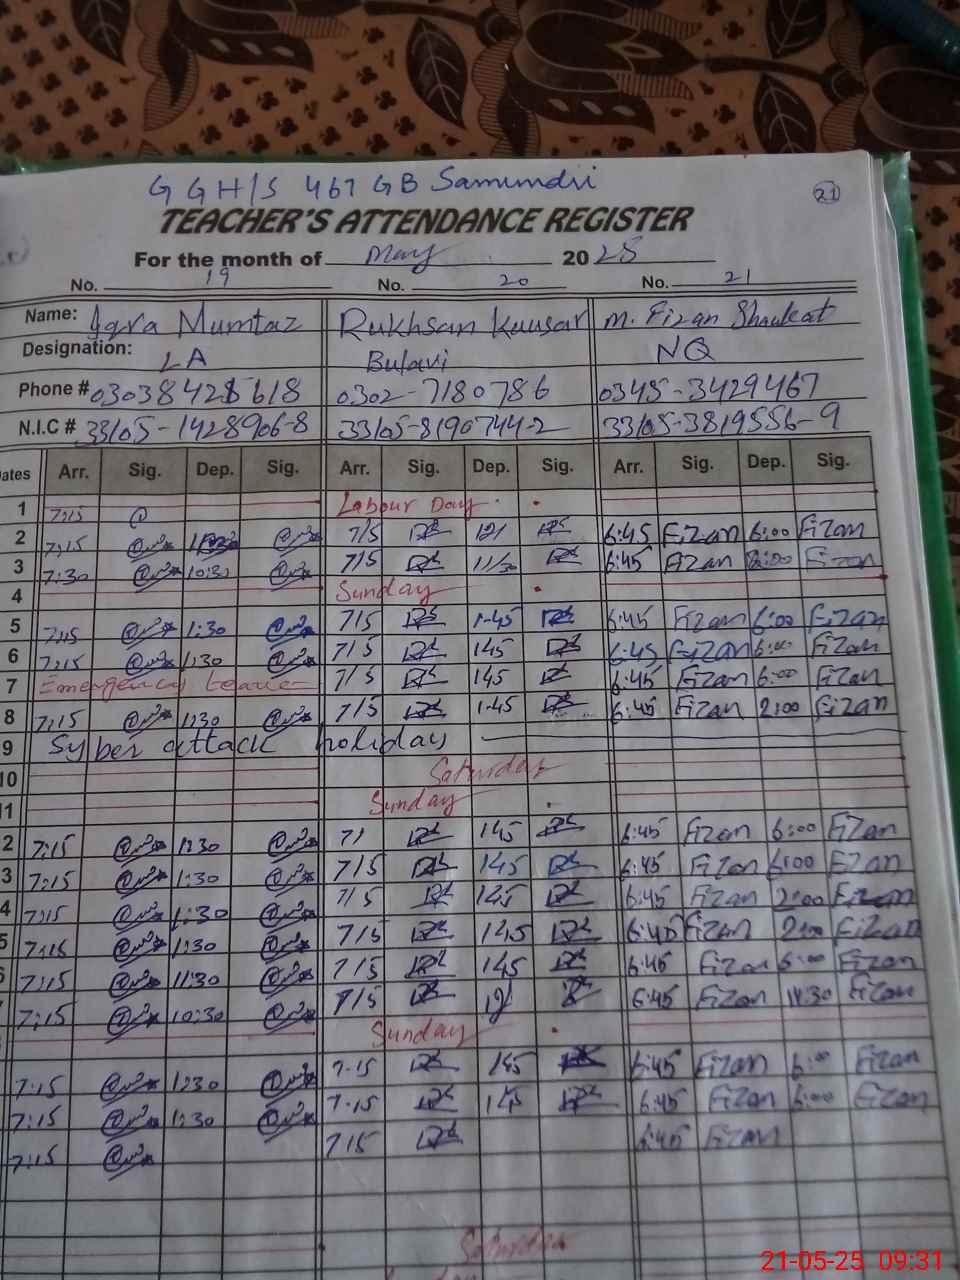 G G H/S 467 GB Samundri
21
TEACHER'S ATTENDANCE REGISTER
For the month of May 2025
No. 19 No. 20 No. 21
Name: Iqra Mumtaz Rukhsan Kausar M. Fizan Shaukat
Designation: LA Bulavi NQ
Phone # 0302-7180786 0345-3429467
N.I.C # 33105-1428906-8 33105-8190744-2 33105-3819556-9
Dates Arr. Sig. Dep. Sig. Arr. Sig. Dep. Sig. Arr. Sig. Dep. Sig.
1 7:15 Labour Day
2 7:15 715 6:45 Fizan 6:00 Fizan
3 7:30 10:30 715 11/30 6:45 Fizan Fizan
4 Sunday
5 7:15 1:30 715 1-45 6:45 Fizan 6:00 Fizan
6 7:15 1:30 715 145 6:45 Fizan 6:00 Fizan
7 Emergency leave 715 145 6:45 Fizan 6:00 Fizan
8 7:15 1:30 715 1-45 6:45 Fizan 2:00 Fizan
9 Syber attack holiday
10 Saturday
11 Sunday
2 7:15 1:30 71 145 6:45 Fizan 6:00 Fizan
3 7:15 1:30 715 145 6:45 Fizan 6:00 Fizan
4 7:15 1:30 715 145 6:45 Fizan 2:00 Fizan
5 7:15 1:30 715 145 6:45 Fizan 2:00 Fizan
6 7:15 11:30 715 145 6:45 Fizan 6:00 Fizan
7 7:15 10:30 715 6:45 Fizan Fizan
Sunday
7:15 1:30 7-15 145 6:45 Fizan 6:00 Fizan
7:15 1:30 7-15 145 6:45 Fizan 6:00 Fizan
7:15 715 6:45 Fizan
Saturday
21-05-25 09:31